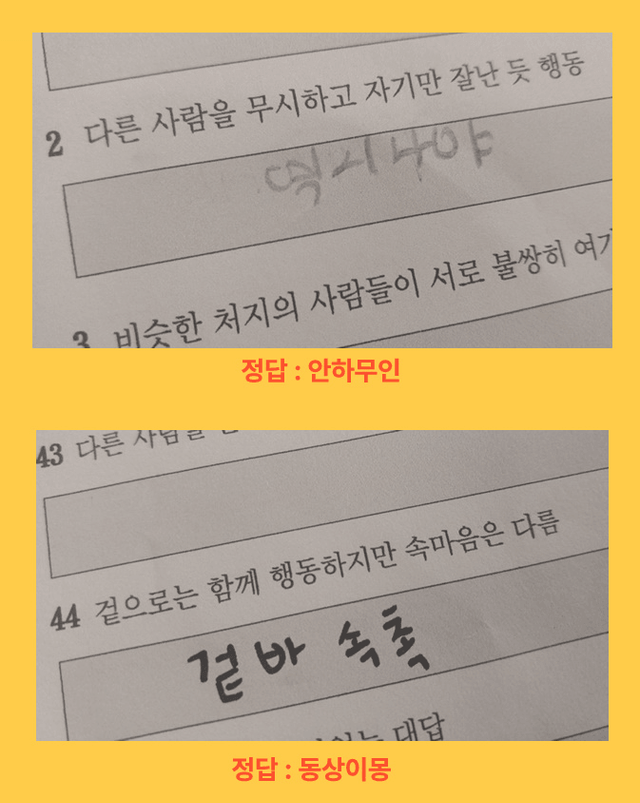 2 다른 사람을 무시하고 자기만 잘난 듯 행동
역시나야
3 비슷한 처지의 사람들이 서로 불쌍히 여기
정답 : 안하무인
43 다른 사람을
44 겉으로는 함께 행동하지만 속마음은 다름
겉바 속촉
대답
정답 : 동상이몽